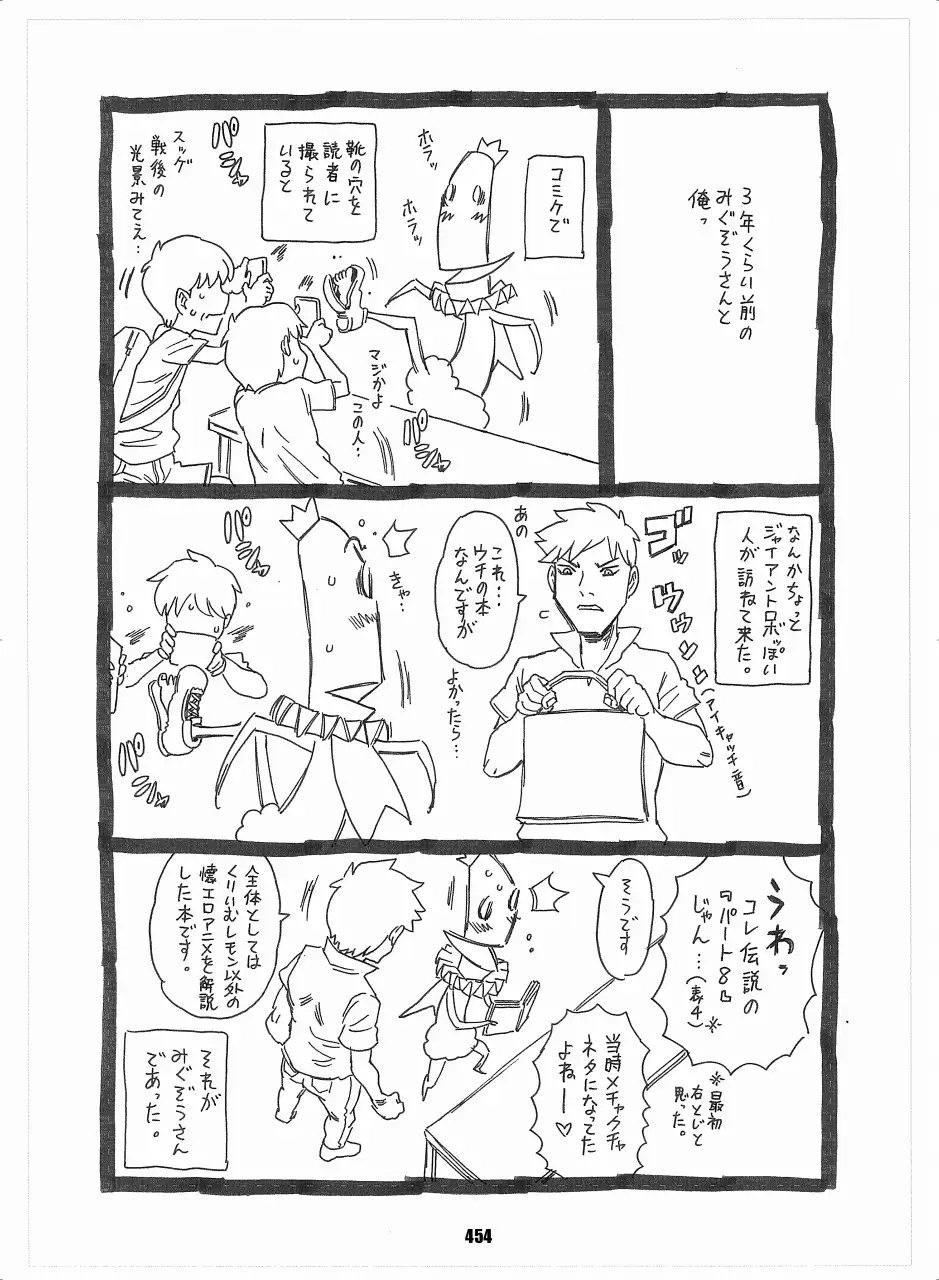 3年くらい前の
みぐぞうさんと
俺っ
コミケで
ホラッ
ホラッ
靴の穴を
読者に
撮られて
いると
パシャ
スッゲ
戦後の
光景みてえ…
マジかよ
この人…
パシャ
なんかちょっと
ジャイアントロボッぽい
人が訪ねて来た。
ゴッ
ウゥウン…
(アイキャッチ音)
あの
これ…
ウチの本
なんですが
よかったら…
きゃ…
パシャ
パシャ
うわっ
コレ伝説の
『パート8』
じゃん…(表4)※
※最初
右とじと
思った。
そうです
当時メチャクチャ
ネタになってた
よねー♡
全体としては
くりいむレモン以外の
懐エロアニメを解説
した本です。
それが
みぐぞうさん
であった。
454